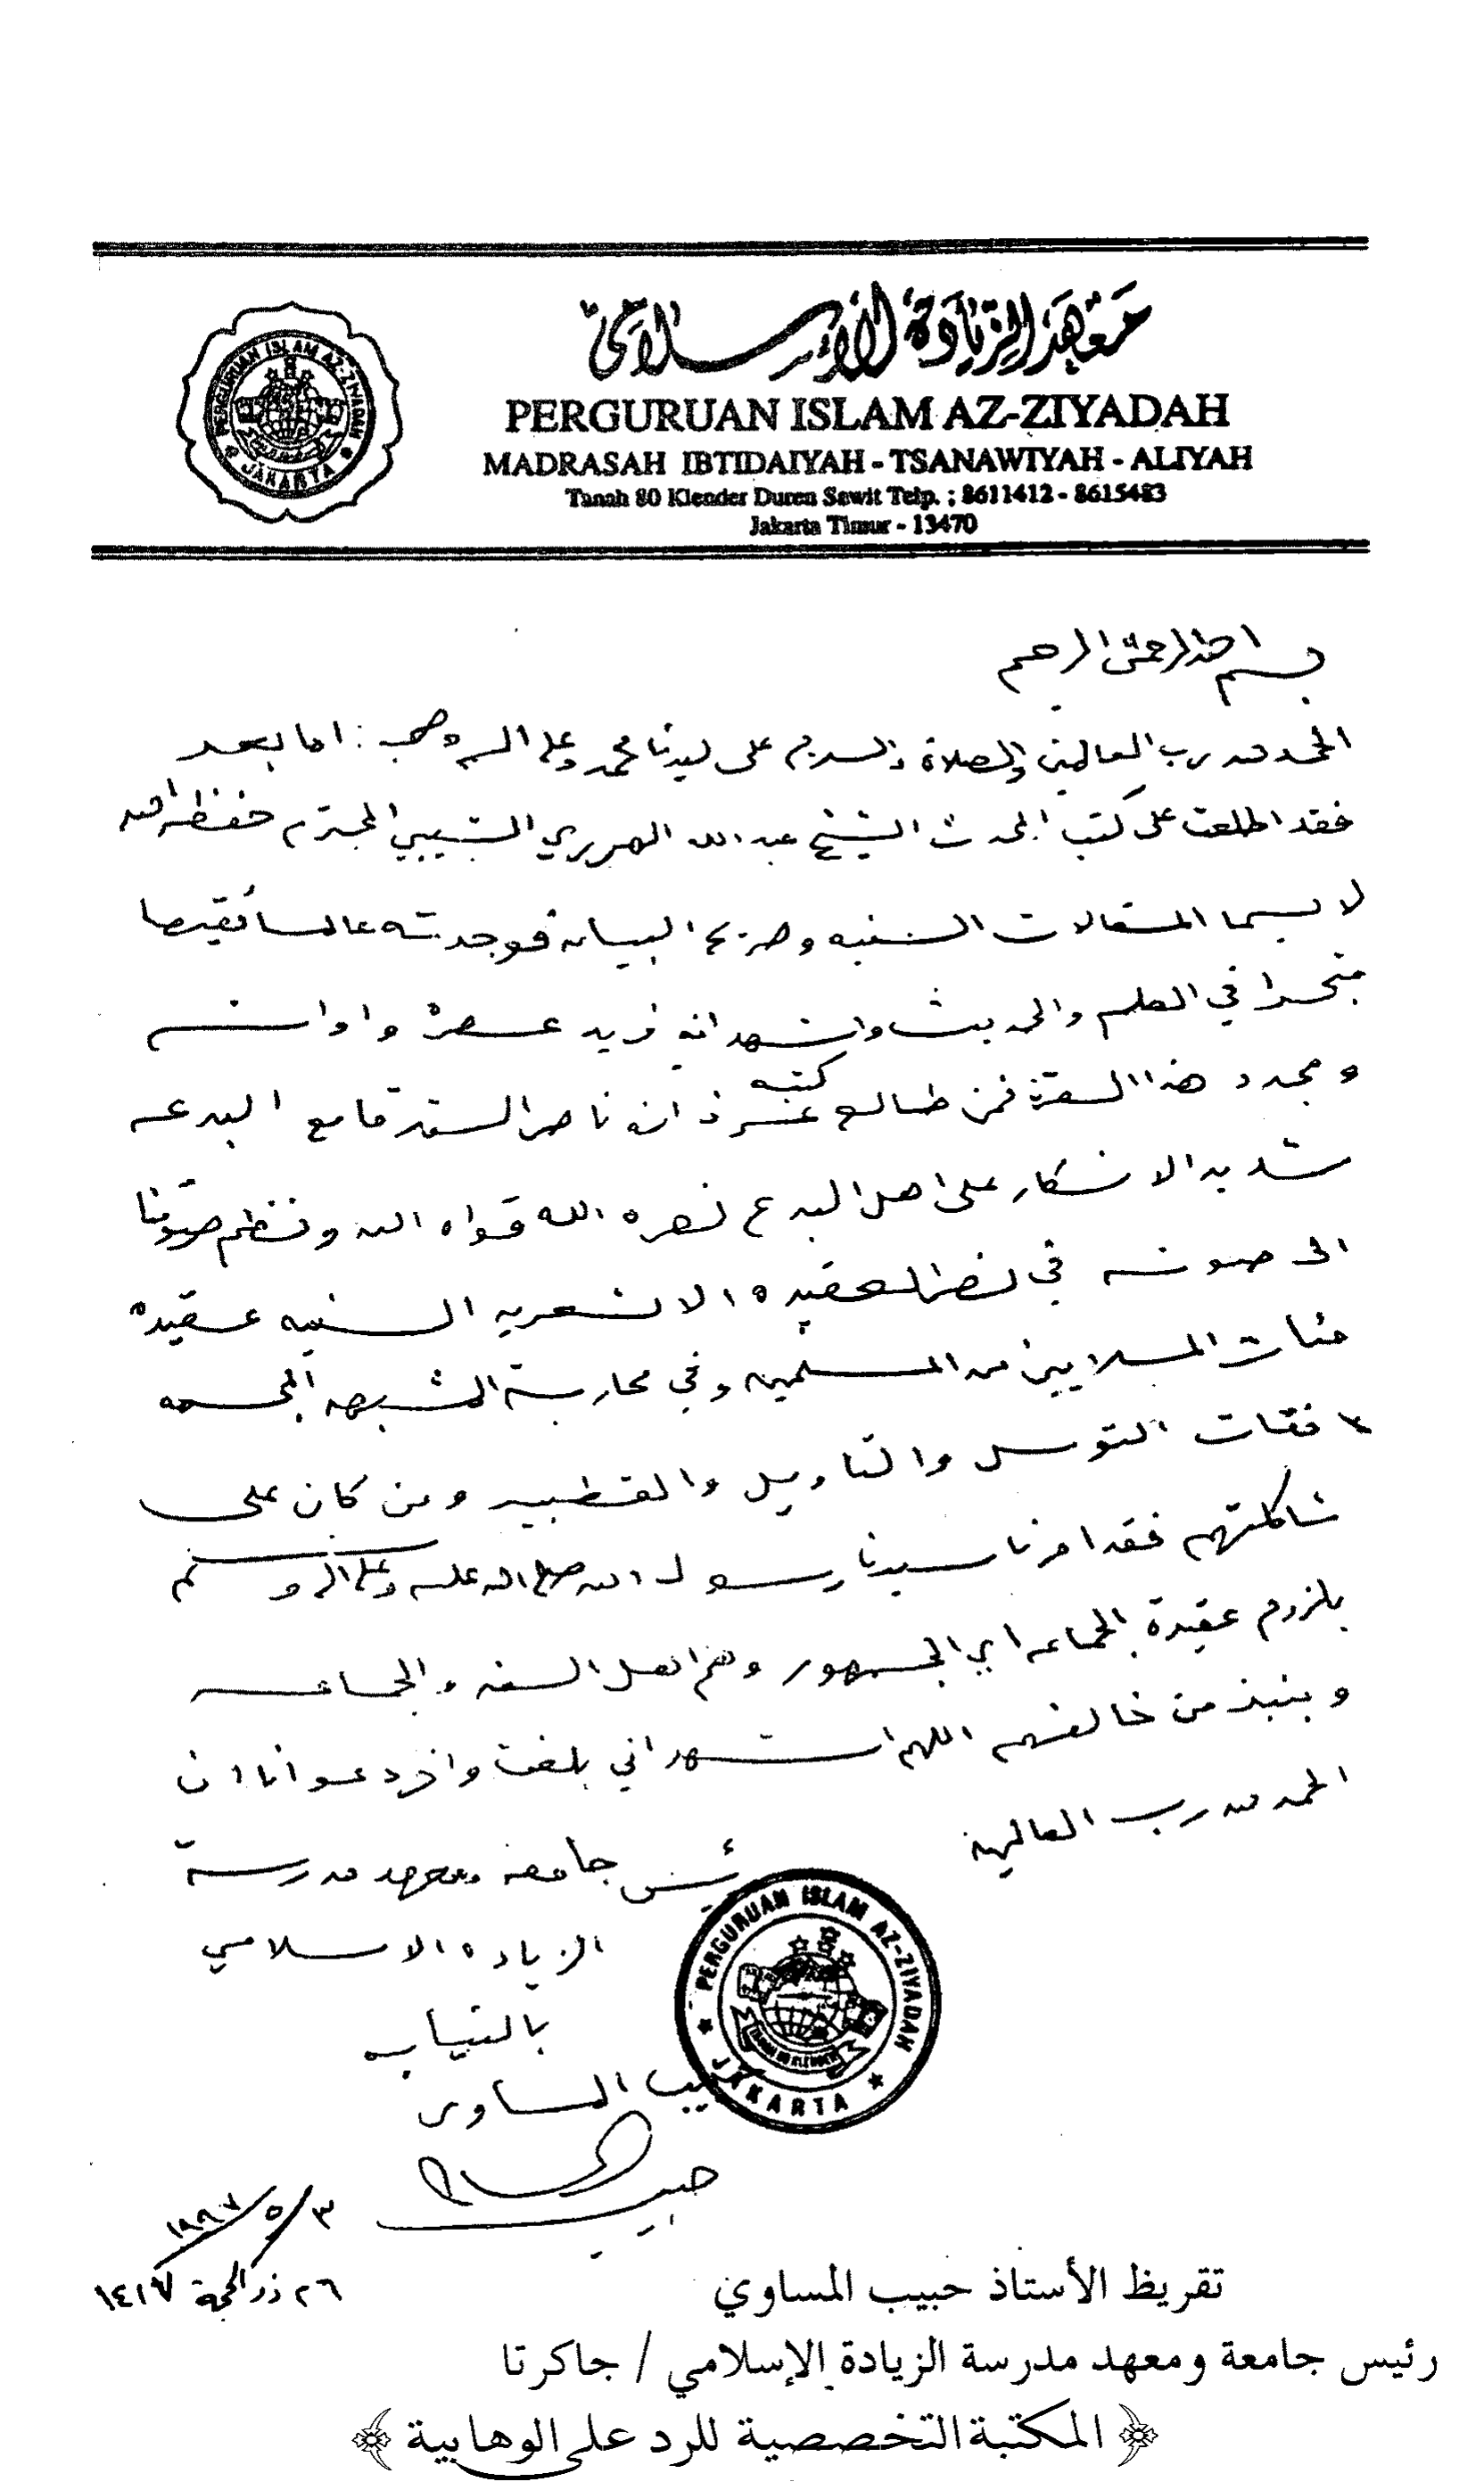 معهد الزيادة الإسلامي
PERGURUAN ISLAM AZ-ZIYADAH
MADRASAH IBTIDAIYAH - TSANAWIYAH - ALIYAH
Tanah 80 Klender Duren Sawit Telp. : 8611412 - 8615483
Jakarta Timur - 13470
PERGURUAN ISLAM AZ-ZIYADAH
JAKARTA
بسم الله الرحمن الرحيم
الحمد لله رب العالمين والصلاة والسلام على سيدنا محمد وعلى اله وصحبه : اما بعد
فقد اطلعت على كتب المحدث الشيخ عبد الله الهرري الشيبي المحترم حفظه الله
لا سيما المقالات السنيه وصريح البيان فوجدته عالما فقيها
متبحرا في العلم والحديث واشهد انه فريد عصره واوانه
ومجدد هذا القرن فمن طالع كتبه عرف انه ناصر السنة قامع البدعه
شديد الانكار على اهل البدع نصره الله قواه الله ونضم صوتنا
الى صوته في نصر العقيده الاشعريه السنيه عقيده
مئات الملايين من المسلمين وفي محاربة المشبهه المجسمه
نفات التوسل والتاويل والقطبيه ومن كان على
شاكلتهم فقد امرنا سيدنا رسول الله صلى الله عليه وعلى اله وسلم
بلزوم عقيدة الجماعه اي الجمهور وهم اهل السنه والجماعه
وبنبذ من خالفهم اللهم اشهد اني بلغت واخر دعوانا ان
الحمد لله رب العالمين
رئيس جامعه ومعهد مدرسة
الزياده الاسلامي
بالنيابه
حبيب المساوى
PERGURUAN ISLAM AZ-ZIYADAH
JAKARTA
حبيب
٣/٥/١٩٩٧
٢٦ ذو الحجة ١٤١٧
تقريظ الأستاذ حبيب المساوي
رئيس جامعة ومعهد مدرسة الزيادة الإسلامي / جاكرتا
﴿ المكتبة التخصصية للرد على الوهابية ﴾